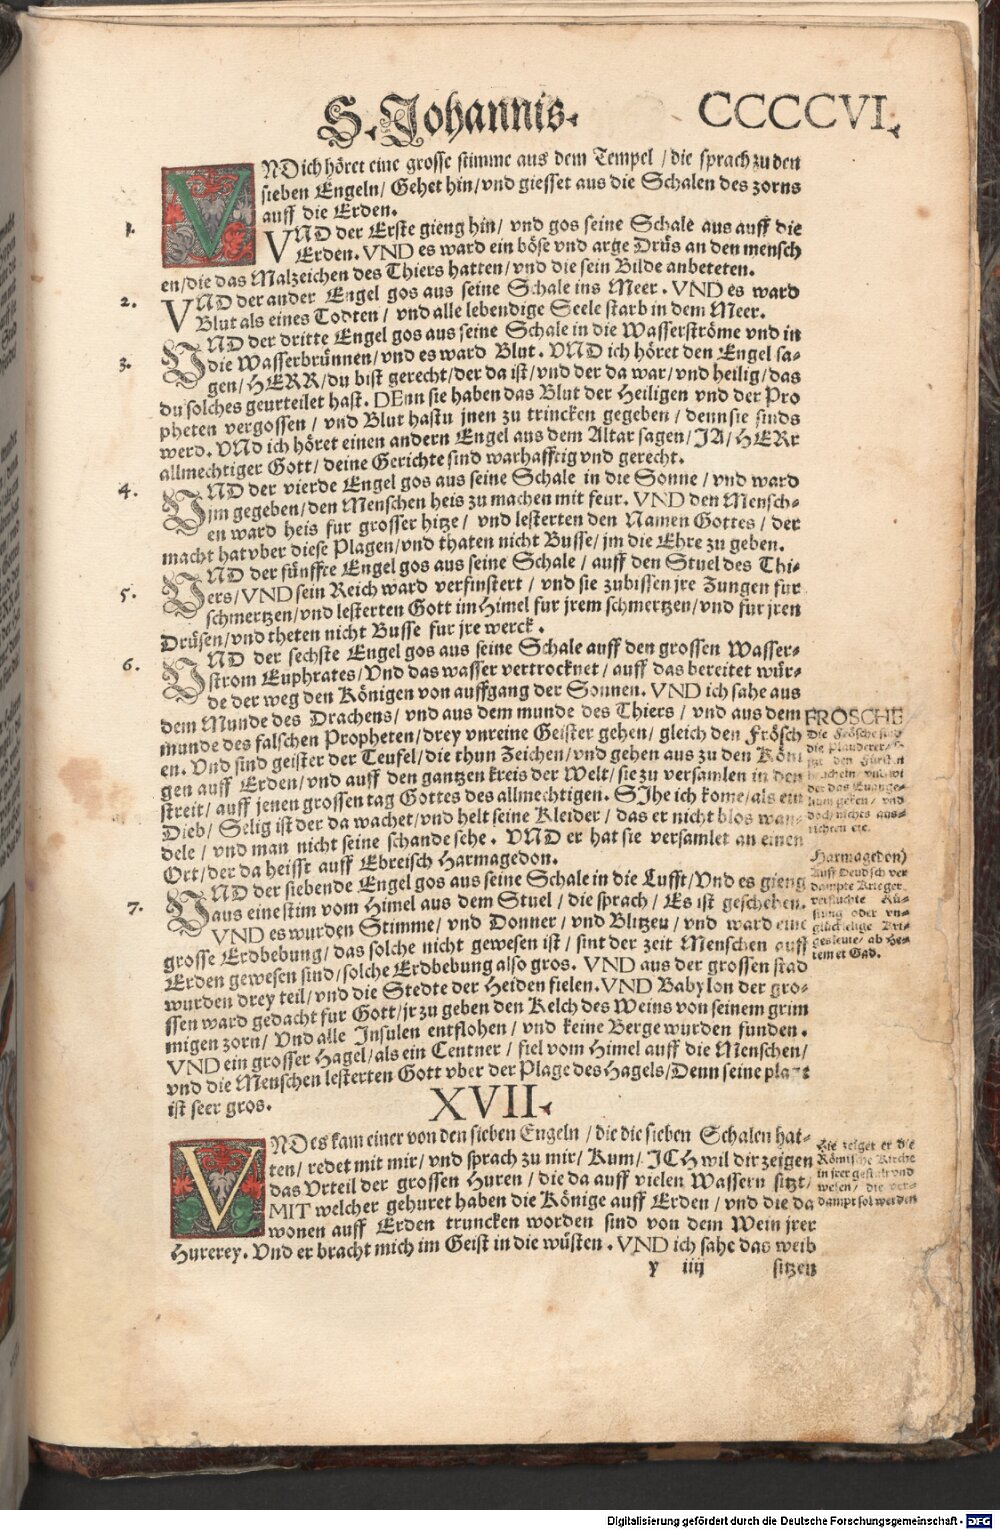 S. Johannis.
CCCCVI.
VND ich höret eine grosse stimme aus dem Tempel / die sprach zu den
sieben Engeln / Gehet hin / vnd giesset aus die Schalen des zorns
auff die Erden.
1.
VND der Erste gieng hin / vnd gos seine Schale aus auff die
Erden. VND es ward ein böse vnd arge Drüs an den mensch
en / die das Malzeichen des Thiers hatten / vnd die sein Bilde anbeteten.
2.
VND der ander Engel gos aus seine Schale ins Meer. VND es ward
Blut als eines Todten / vnd alle lebendige Seele starb in dem Meer.
3.
VND der dritte Engel gos aus seine Schale in die Wasserströme vnd in
die Wasserbrünnen / vnd es ward Blut. VND ich höret den Engel sa-
gen / HERR / du bist gerecht / der da ist / vnd der da war / vnd heilig / das
du solches geurteilet hast. DEnn sie haben das Blut der Heiligen vnd der Pro
pheten vergossen / vnd Blut hastu jnen zu trincken gegeben / denn sie sinds
werd. VNd ich höret einen andern Engel aus dem Altar sagen / JA / HERr
allmechtiger Gott / deine Gerichte sind warhafftig vnd gerecht.
4.
VND der vierde Engel gos aus seine Schale in die Sonne / vnd ward
jm gegeben / den Menschen heis zu machen mit feur. VND den Mensch-
en ward heis fur grosser hitze / vnd lesterten den Namen Gottes / der
macht hat vber diese Plagen / vnd thaten nicht Busse / jm die Ehre zu geben.
5.
VND der fünffte Engel gos aus seine Schale / auff den Stuel des Thi-
ers / VND sein Reich ward verfinstert / vnd sie zubissen jre Zungen fur
schmertzen / vnd lesterten Gott im Himel fur jrem schmertzen / vnd fur jren
Drüsen / vnd theten nicht Busse fur jre werck.
6.
VND der sechste Engel gos aus seine Schale auff den grossen Wasser-
strom Euphrates / Vnd das wasser vertrocknet / auff das bereitet wür-
de der weg den Königen von auffgang der Sonnen. VND ich sahe aus
dem Munde des Drachens / vnd aus dem munde des Thiers / vnd aus dem
munde des falschen Propheten / drey vnreine Geister gehen / gleich den Frösch
en. Vnd sind geister der Teufel / die thun Zeichen / vnd gehen aus zu den Köni
gen auff Erden / vnd auff den gantzen kreis der Welt / sie zu versamlen in den
streit / auff jenen grossen tag Gottes des allmechtigen. SIhe ich kome / als ein
Dieb / Selig ist der da wachet / vnd helt seine Kleider / das er nicht blos wan-
dele / vnd man nicht seine schande sehe. VND er hat sie versamlet an einen
Ort / der da heisst auff Ebreisch Harmagedon.
FRÖSCHE
Die Frösche sind
die Plauderer /
den Fürsten
heucheln / vnd wi
der das Euange-
lium gecken / vnd
doch nichts aus-
richten etc.
Harmagedon)
Auff Deudsch ver
dampte Krieger
verfluchte Rü-
stung oder vn-
glückselige Kri-
gesleute / ab Her
iem et Gad.
7.
VND der siebende Engel gos aus seine Schale in die Lufft / Vnd es gieng
aus eine stim vom Himel aus dem Stuel / die sprach / Es ist geschehen.
VND es wurden Stimme / vnd Donner / vnd Blitzen / vnd ward eine
grosse Erdbebung / das solche nicht gewesen ist / sint der zeit Menschen auff
Erden gewesen sind / solche Erdbebung also gros. VND aus der grossen stad
wurden drey teil / vnd die Stedte der Heiden fielen. VND Babylon der gro-
ssen ward gedacht fur Gott / jr zu geben den Kelch des Weins von seinem grim
migen zorn / Vnd alle Insulen entflohen / vnd keine Berge wurden funden.
VND ein grosser Hagel / als ein Centner / fiel vom Himel auff die Menschen /
vnd die Menschen lesterten Gott vber der Plage des Hagels / Denn seine plage
ist seer gros.
XVII.
VND es kam einer von den sieben Engeln / die die sieben Schalen hat-
ten / redet mit mir / vnd sprach zu mir / Kum / ICH wil dir zeigen
das Vrteil der grossen Huren / die da auff vielen Wassern sitzt /
MIT welcher gehuret haben die Könige auff Erden / vnd die da
wonen auff Erden truncken worden sind von dem Wein jrer
Hurerey. Vnd er bracht mich im Geist in die wüsten. VND ich sahe das weib
Hie zeiget er die
Römische Kirche
in jrer gestalt vnd
wesen / die ver-
dampt sol werden
y iiij
sitzen
Digitalisierung gefördert durch die Deutsche Forschungsgemeinschaft - DFG